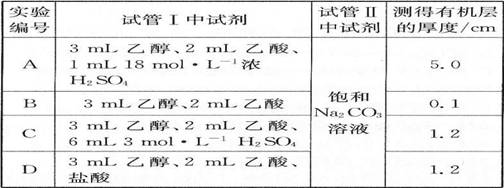 实验编号 试管Ⅰ中试剂 试管Ⅱ中试剂 测得有机层的厚度/cm
A 3 mL 乙醇、2 mL 乙酸、
1 mL 18 mol·L⁻¹浓
H₂SO₄ 5.0
B 3 mL 乙醇、2 mL 乙酸 饱和 0.1
Na₂CO₃
溶液
C 3 mL 乙醇、2 mL 乙酸、
6 mL 3 mol·L⁻¹ H₂SO₄ 1.2
D 3 mL 乙醇、2 mL 乙酸、
盐酸 1.2